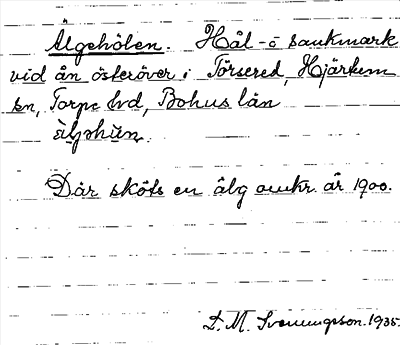 Älgehölen. Hål- o sankmark
vid ån österöver i Törsered, Hjärtum
sn, Torpe hd, Bohus län
Där sköts en älg omkr. år 1900.
D. M. Svenungsson. 1935.